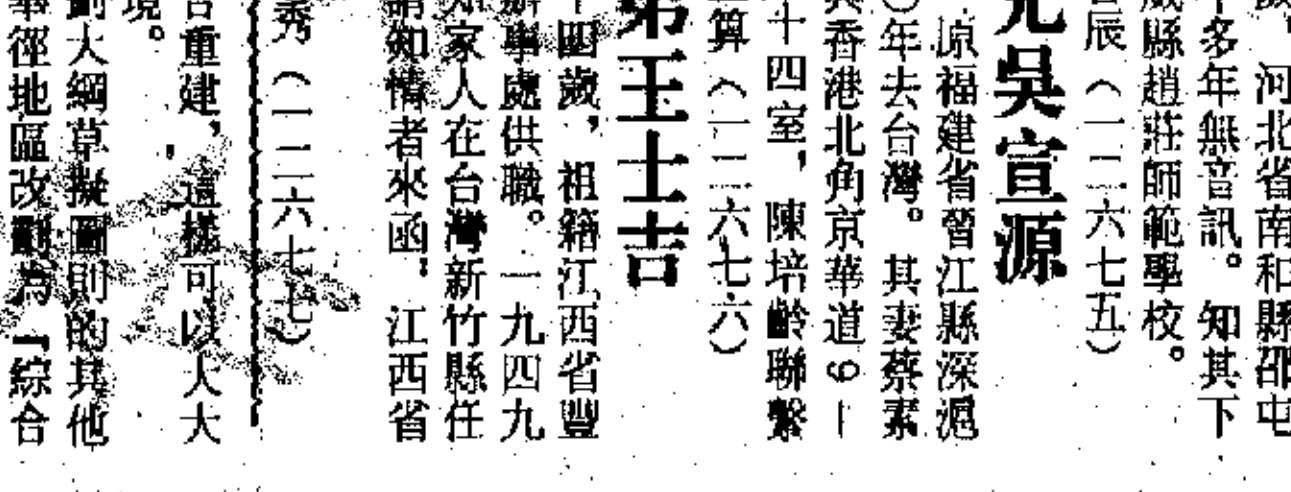 河北省南和縣邵屯
多年無音訊。知其下
縣趙莊師範學校。
辰（一二六七五）
吳宣源
原福建省晉江縣深滬
年去台灣。其妻蔡素
香港北角京華道６－
十四室，陳培齡聯繫
算（一二六七六）
弟王士吉
四歲，祖籍江西省豐
辦事處供職。一九四九
家人在台灣新竹縣任
請知情者來函，江西省
秀（一二六七七）
重建，這樣可以大大
境。
劃大綱草擬圖則的其他
徑地區改劃為「綜合